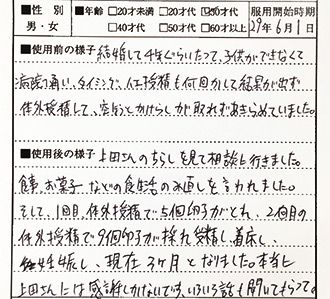 ■性 別 ■年齢 □20才未満 □20才代 ☑30才代 服用開始時期
男・女 □40才代 □50才代 □60才以上 29年6月1日
■使用前の様子 結婚して4年ぐらいたって、子供ができなくて
病院通い、タイミング、人工授精も何回かして結果が出ず
体外授精して、空胞とかけらしか取れずあきらめていました。
■使用後の様子 上田さんのちらしを見て相談に行きました。
食事、お菓子などの食生活の見直しを言われました。
そして、1回目、体外授精で5個卵子がとれ、2回目の
体外授精で9個卵子が採れ受精し、着床し、
妊娠し、現在3ヶ月となりました。本当に
上田さんには感謝しかないです。いろいろ話も聞いてもらって。